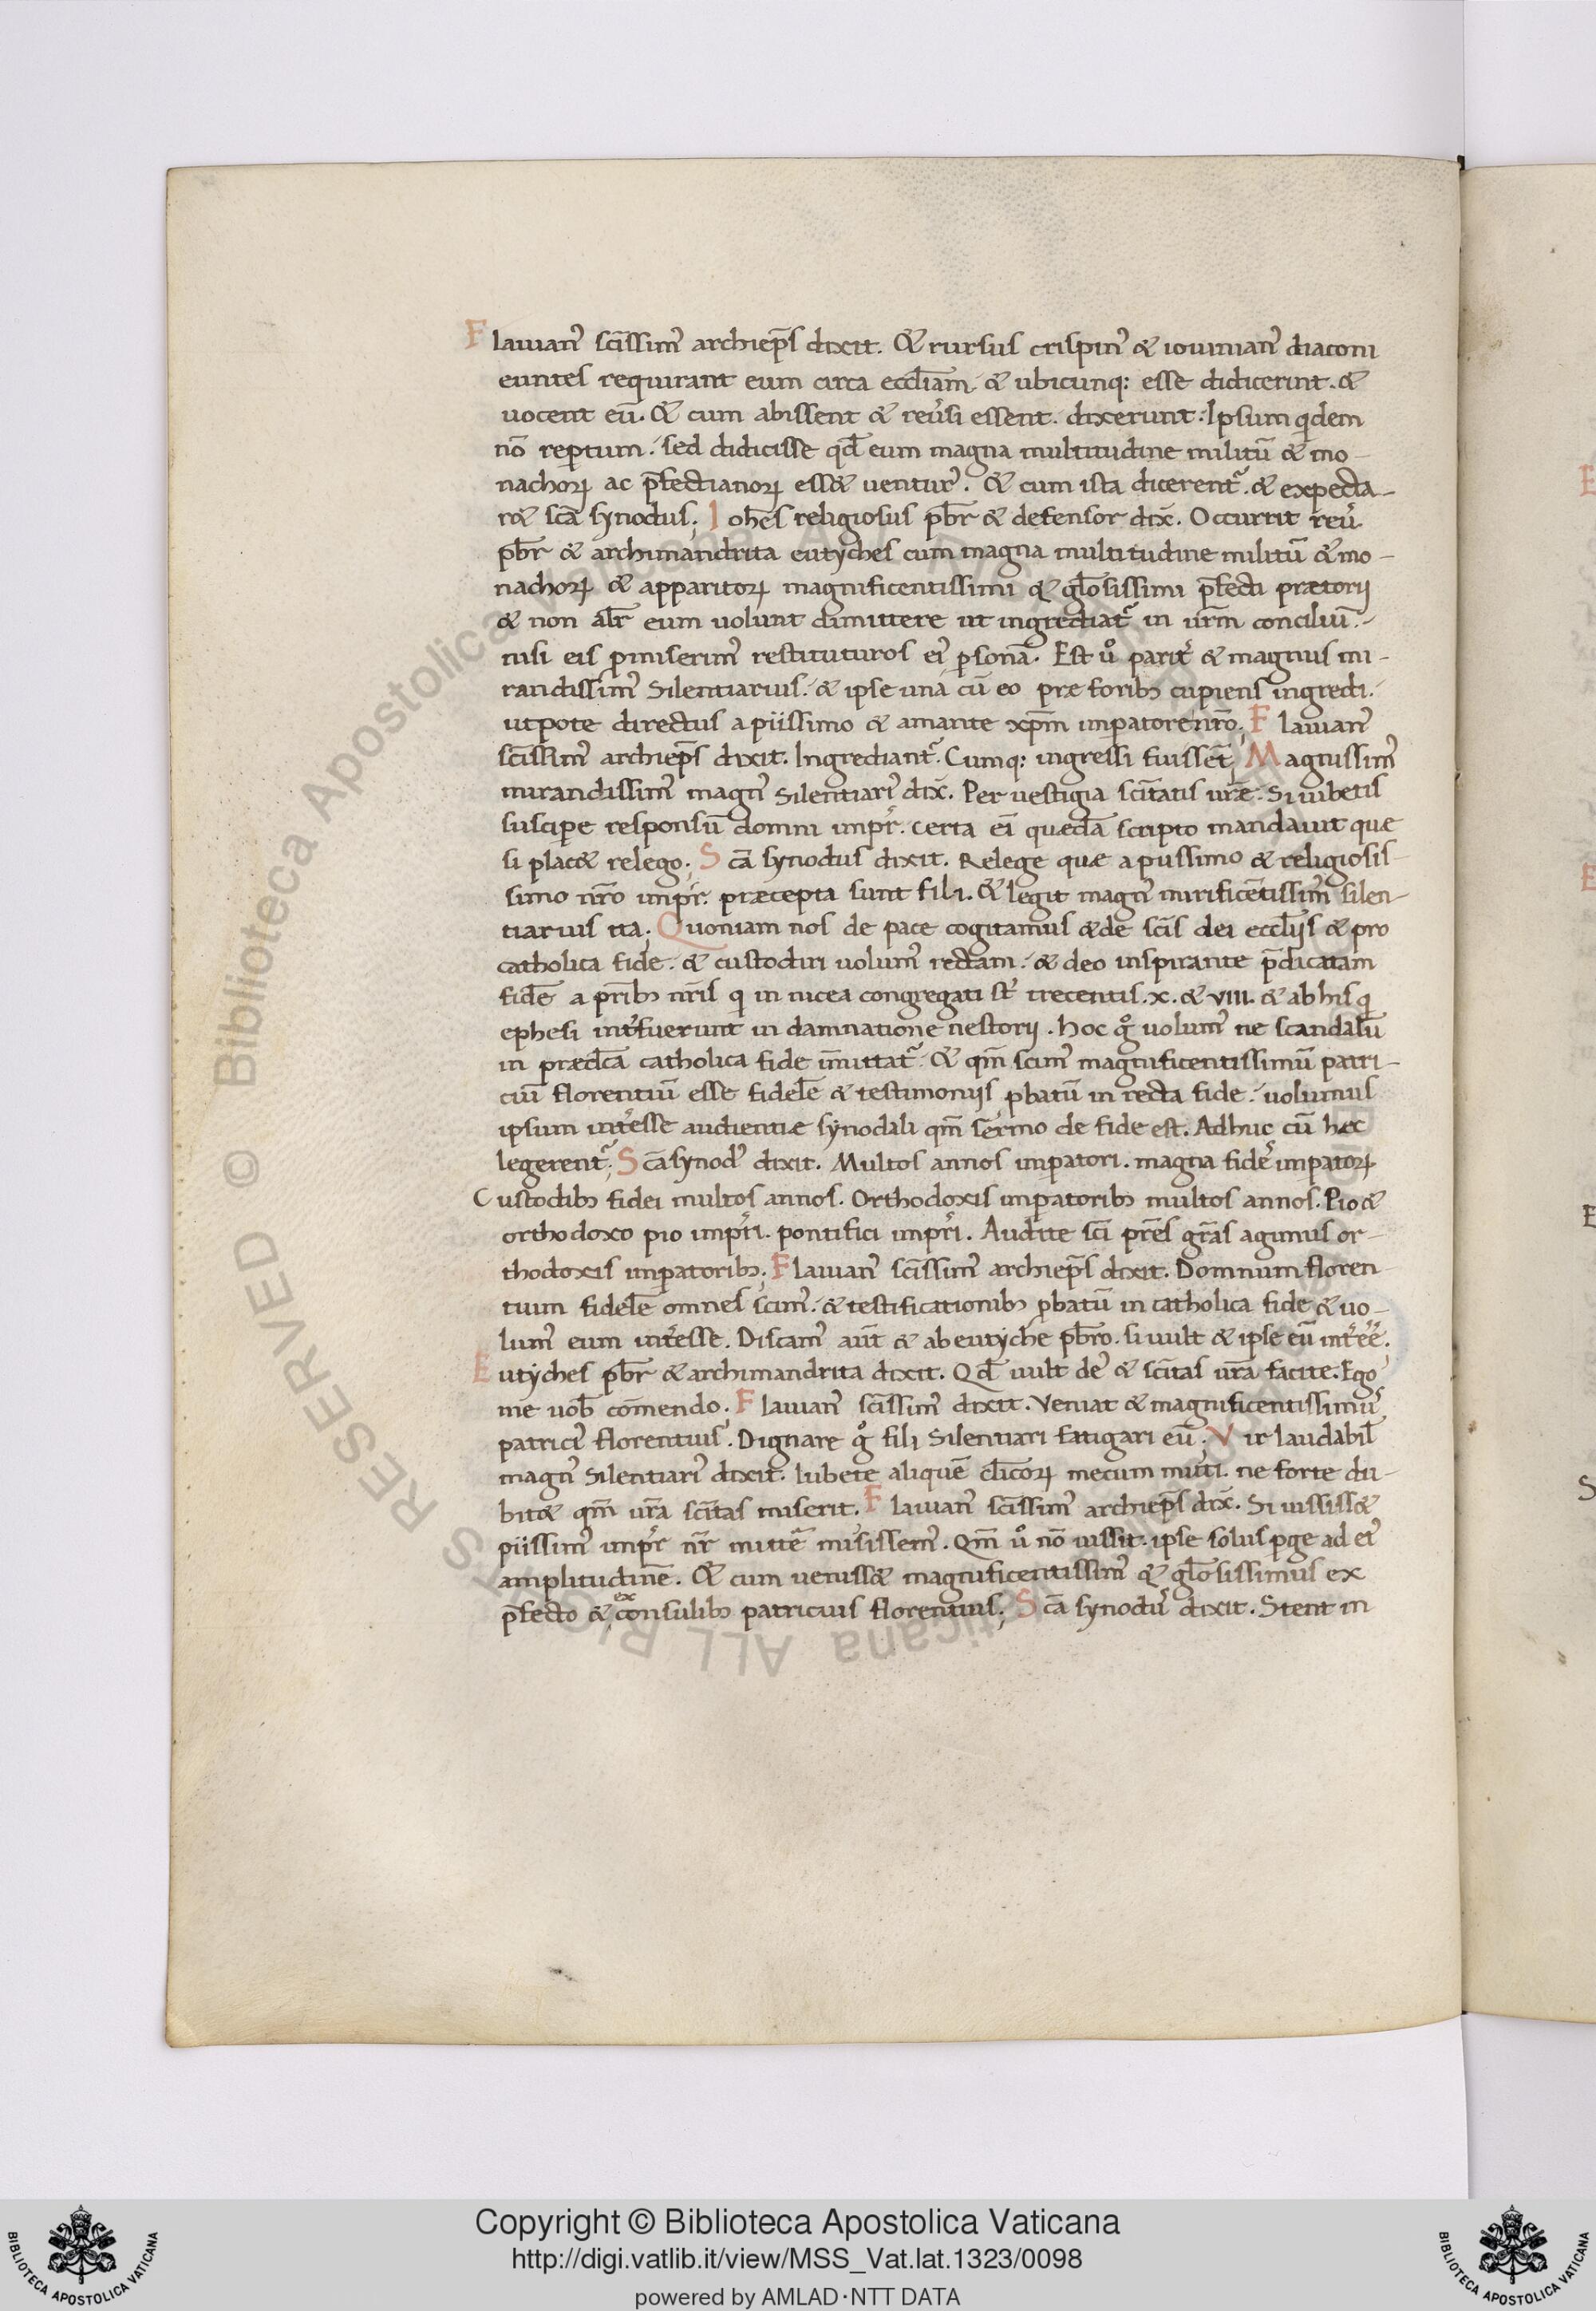 Flauian᷒ sc̄issim᷒ archiep̄s dixit. & rursus crispin᷒ & iouinian᷒ diaconi
euntes requirant eum circa eccl̄iam. & ubicunq: esse didicerint. &
uocent eū. & cum abissent & reu᷒si essent. dixerunt: Ipsum qidem
nō rep̱tum. sed didicisse qd̄ eum magna multitudine militū & mo-
nachoꝝ ac p̄fectianoꝝ ess& uentur᷒. & cum ista dicerent᷒. & expecta-
r& sc̄a synodus; Ioh̄es religiosus pb̄r & defensor dix̄. Occurrit reu᷒.
pb̄r & archimandrita eutyches cum magna multitudine militū & mo-
nachoꝝ & apparitoꝝ magnificentissimi & gl̄osissimi p̄fecti prætorii
& non al̄r eum uolunt dimittere ut ingrediat᷒ in ur̄m conciliū.
nisi eis ꝓmiserim᷒ restituturos ei᷒ ꝑsonā. Est u᷒ parit᷒ & magnus mi-
randissim᷒ Silentiarius. & ipse unā cū eo præ foribꝫ cupiens ingredi.
utpote directus a piissimo & amante xp̄m imꝑatore nr̄o; Flauian᷒
sc̄issim᷒ archiep̄s dixit. Ingrediant᷒. Cumq: ingressi fuissēt; Magnissim᷒
mirandissim᷒ magn᷒ Silentiari᷒ dix̄. Per uestigia sc̄itatis ur̄æ. Si iubetis
susciꝑe responsū domni imp̄r. certa eī quedā scripto mandauit que
si plac& relego; Sc̄a synodus dixit. Relege quæ a piissimo & religiosis-
simo nr̄o imp̄r. præcepta sunt fili. & legit magn᷒ mirificētissim᷒ silen-
tiarius ita; Quoniam nos de pace cogitamus & de sc̄is dei eccl̄ijs & pro
catholica fide. & custodiri uolum᷒ rectam. & deo inspirante p̄dicatam
fidē a pr̄ibꝫ nr̄is q̇ in nicea congregati st᷒ trecentis.x.&viii. & ab his q̇
ephesi int᷒fuerunt in damnatione nestorij. hoc g᷒ uolum᷒ ne scandalū
in prædc̄a catholica fide īmittat᷒. & qm̄ scim᷒ magnificentissimū patri-
ciū florentiū esse fidelē & testimonijs ꝓbatū in recta fide. uolumus
ipsum int᷒esse audientiæ synodali qm̄ sermo de fide est. Adhuc cū hæc
legerent᷒; Sc̄a synod᷒ dixit. Multos annos imꝑatori. magna fid᷒ imꝑatoꝝ
Custodibꝫ fidei multos annos. Orthodoxis imꝑatoribꝫ multos annos. Pio &
orthodoxo pio imp̄ri. pontifici imp̄ri. Audite sc̄i pr̄es gr̄as agimus or-
thodoxis imꝑatoribꝫ; Flauian᷒ sc̄issim᷒ archiep̄s dixit. Domnum floren
tium fidelē omnes scim᷒. & testificationibꝫ ꝓbatū in catholica fide & uo-
lum᷒ eum int᷒esse. Discam᷒ aūt & ab eutyche pb̄ro. si uult & ipse eū int᷒eē.
Eutyches pb̄r & archimandrita dixit. Qd̄ uult de᷒ & sc̄itas ur̄a facite. Ego
me uob̄ cōmendo; Flauian᷒ sc̄issim᷒ dixit. Veniat & magnificentissimu᷒
patrici᷒ florentius. Dignare g᷒ fili Silentiari fatigari eū; Vir laudabil̄
magn᷒ Silentiari᷒ dixit. Iubete aliquē cl̄icoꝝ mecum mitti. ne forte du-
bit& qm̄ ur̄a sc̄itas miserit. Flauian᷒ sc̄issim᷒ archiep̄s dix̄. Si iussiss&
piissim᷒ imp̄r nr̄ mittē misissem᷒. Qm̄ u᷒ nō iussit. ipse solus ꝑge ad ei᷒
amplitudinē. & cum ueniss& magnificentissim᷒ & gl̄osissimus ex
p̄fecto & ex consulibꝫ patricius florentius; Sc̄a synodu᷒ dixit. Stent in
Copyright © Biblioteca Apostolica Vaticana
http://digi.vatlib.it/view/MSS_Vat.lat.1323/0098
powered by AMLAD·NTT DATA